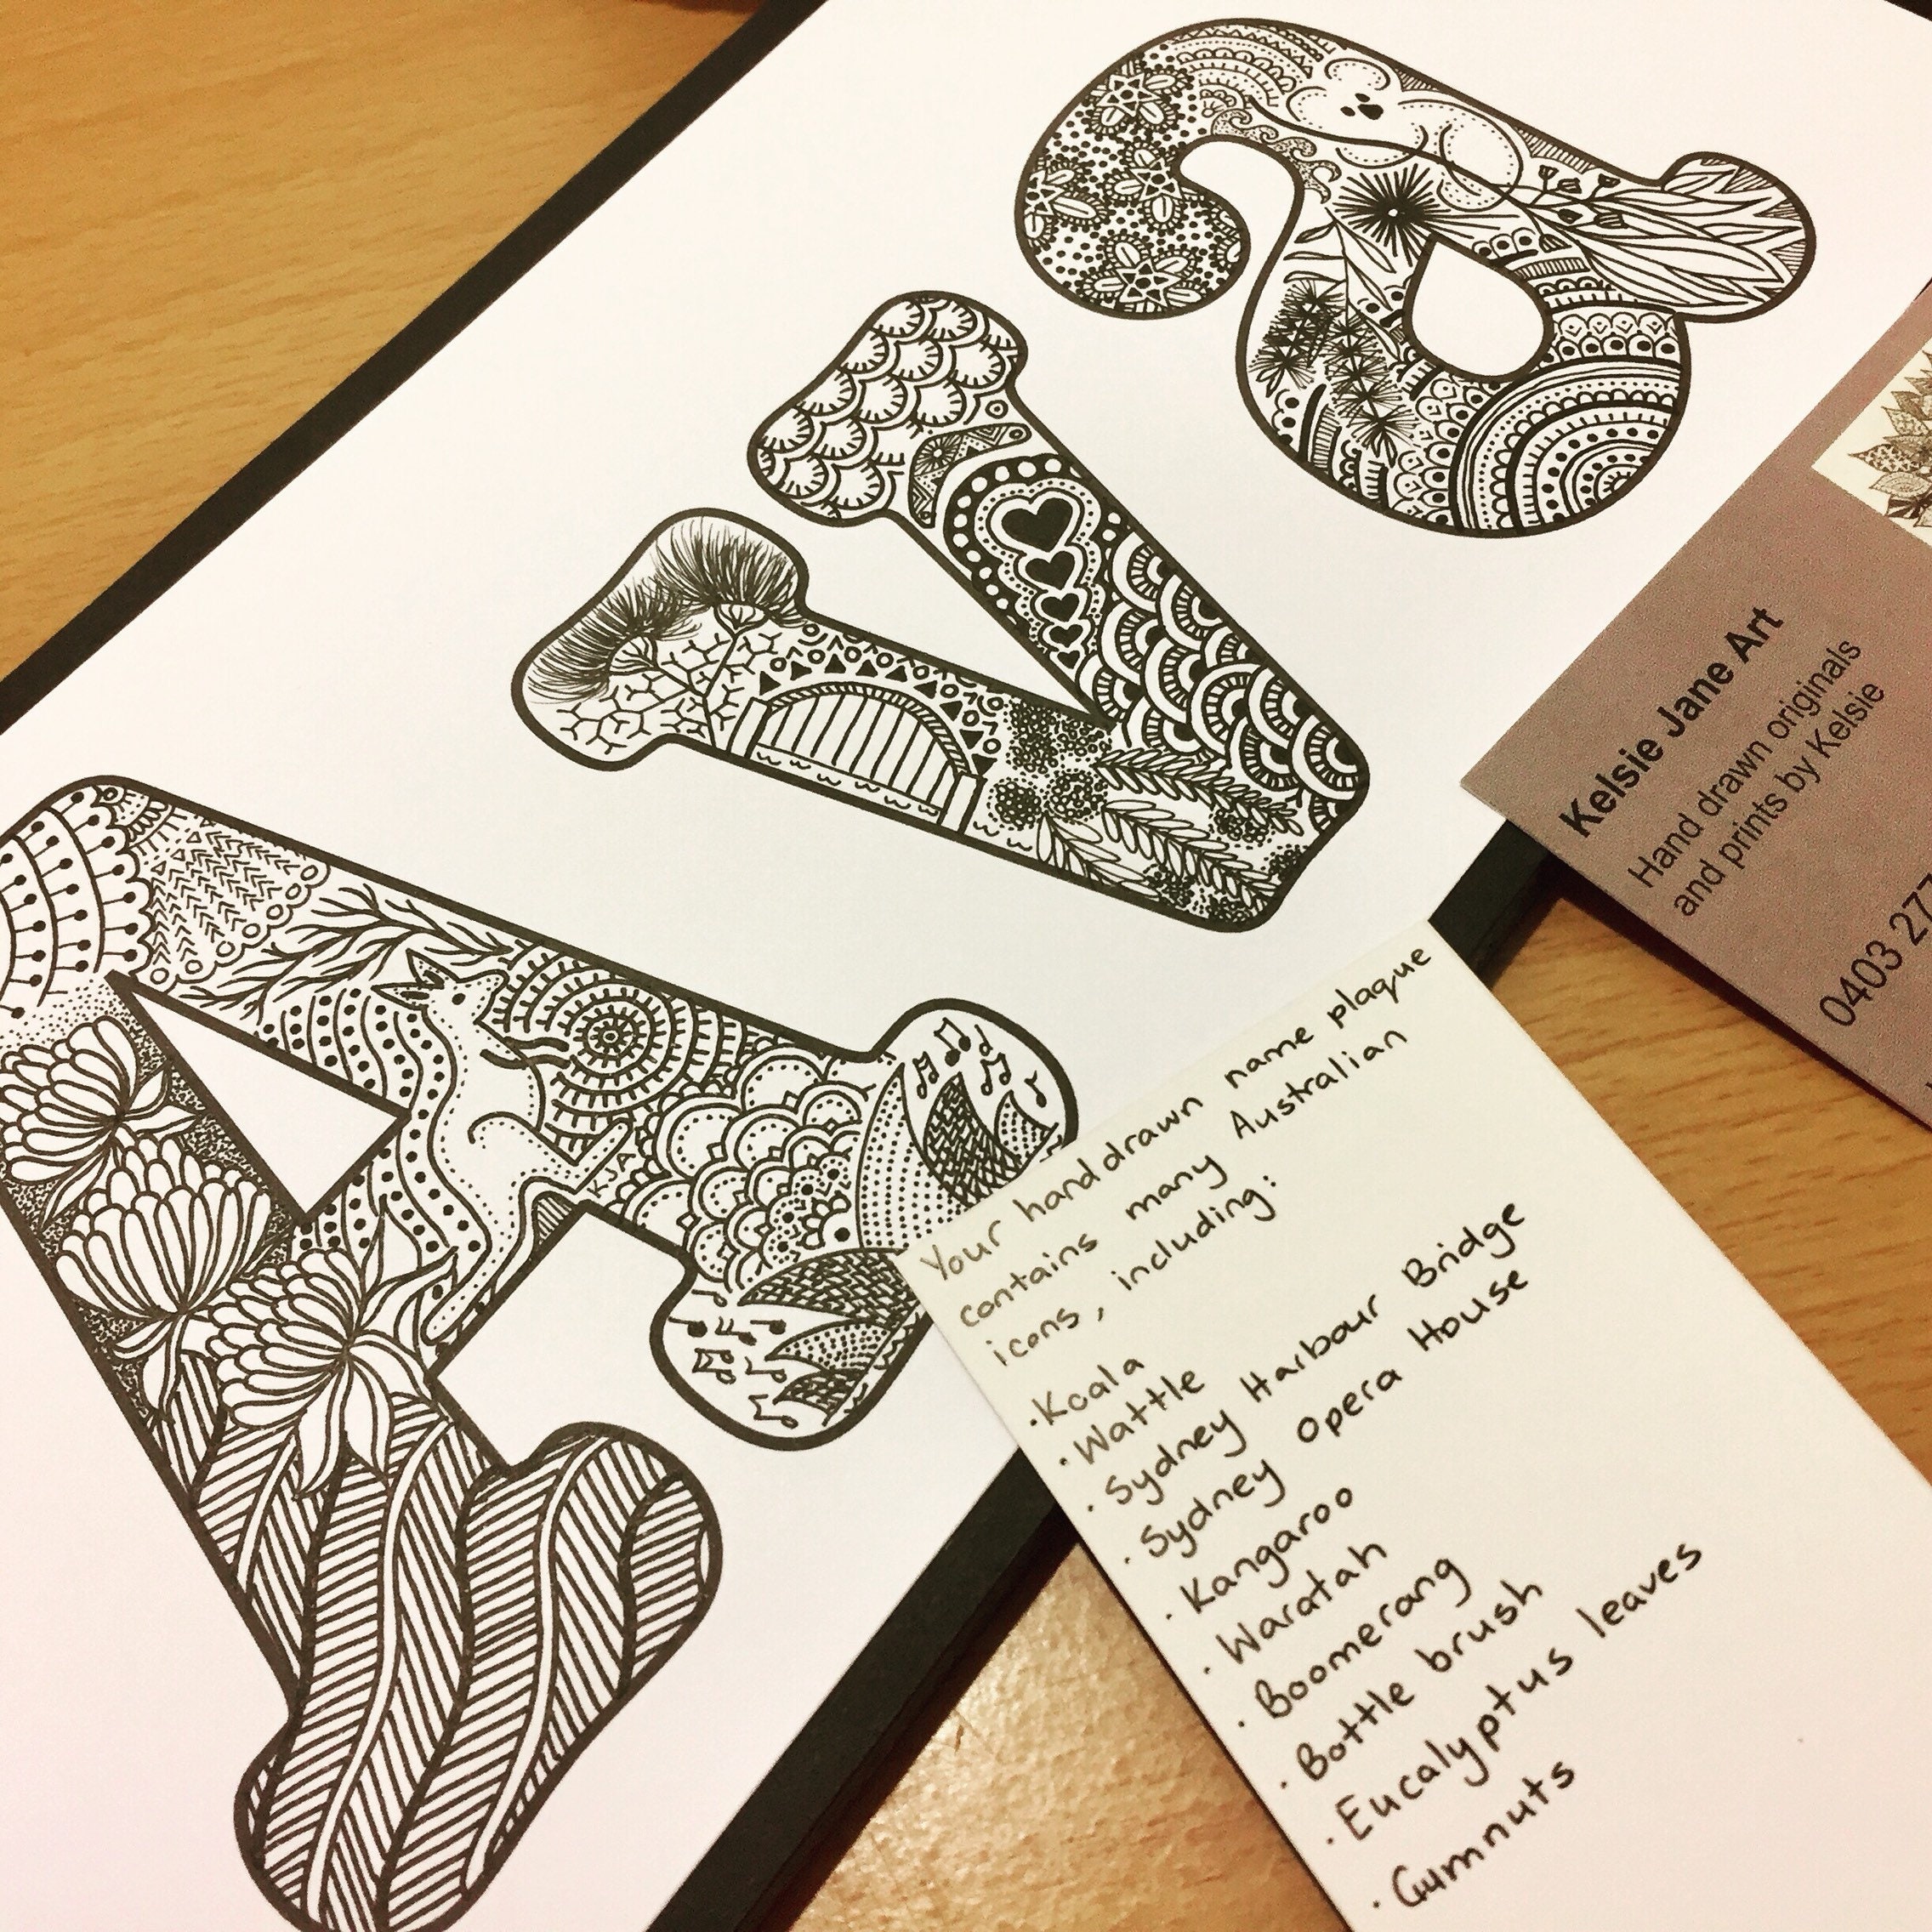 Ava
KJA
Kelsie Jane Art
Hand drawn originals
and prints by Kelsie
0403 277
Your hand drawn name plaque
contains many Australian
icons, including:
· Koala
· Wattle
· Sydney Harbour Bridge
· Sydney Opera House
· Kangaroo
· Waratah
· Boomerang
· Bottle brush
· Eucalyptus leaves
· Gumnuts